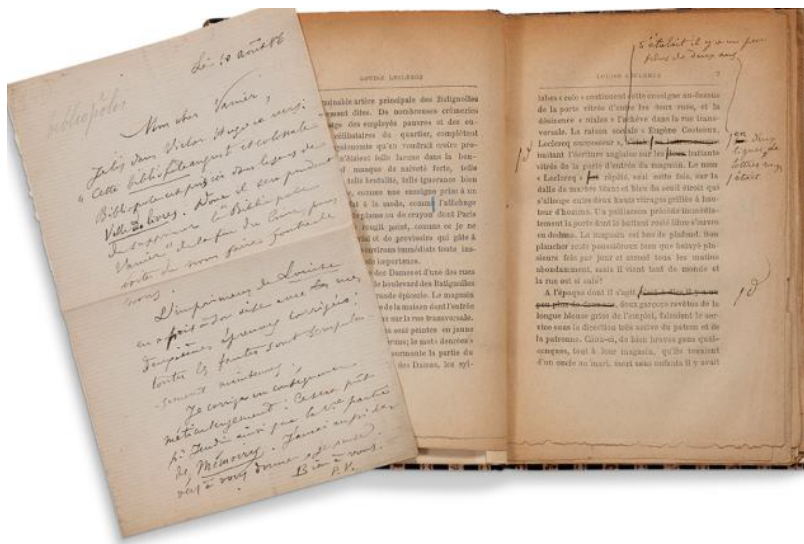 Le 10 août 86
bibliopoles
Mon cher Vanier,
Je lis dans Victor Hugo ce vers :
"Cette bibliopole auguste et colossale"
Bibliopole est pris là dans le sens de
Ville de livres. Donc il sera prudent
de supprimer le "Bibliopole
Vanier" de la fin du livre, sous
peine de nous faire
nous.
L'imprimeur de Louise
en a fait à son aise avec les mes
deuxièmes épreuves corrigées :
toutes les fautes sont scrupuleu-
sement maintenues.
Je corrige en conséquence
méticuleusement. Ce sera prêt
Jeudi ainsi que la partie
de Mémoires. J'aurai aussi des
vers à vous donner
Bien à vous.
P. V.
LOUISE LECLERCQ
artère principale des Batignolles
ment dites. De nombreuses crémeries
des employés pauvres et des
du quartier, complètent
qu'on voudrait croire pro-
telle larme dans la
masque de naïveté forte, telle
telle bestialité, telle ignorance bien
comme une enseigne prise à un
à la mode, comme l'affichage
ou de crayon dont Paris
rougit point, comme ce je ne
et de provisoire qui gâte à
environs immédiats toute
importance.
des Dames et d'une des rues
boulevard des Batignolles
grande épicerie. Le magasin
de la maison dont l'entrée
sur la rue transversale.
sont peintes en jaune
le mot « denrées »
surmonte la partie du
des Dames, les syl-
c'était il y a un peu
plus de deux ans
LOUISE LECLERCQ
labes « colo » continuent cette enseigne au-dessus
de la porte vitrée d'entre les deux rues, et la
désinence « niales » l'achève dans la rue trans-
versale. La raison sociale « Eugène Costeaux,
Leclercq successeur »
imitant l'écriture anglaise sur les battants
vitrés de la porte d'entrée du magasin. Le nom
« Leclercq » répété, seul cette fois, sur la
dalle de marbre blanc et bleu du seuil étroit qui
s'allonge entre deux hauts vitrages grillés à hau-
teur d'homme. Un paillasson précède immédia-
tement la porte dont le battant resté libre s'ouvre
en dedans. Le magasin est bas de plafond. Son
plancher reste poussiéreux bien que balayé plu-
sieurs fois par jour et arrosé tous les matins
abondamment, mais il vient tant de monde et
la rue est si sale !
A l'époque dont il s'agit
peu plus de deux ans, deux garçons revêtus de la
longue blouse grise de l'emploi, faisaient le ser-
vice sous la direction très active du patron et de
la patronne. Ceux-ci, de bien braves gens quel-
conques, tout à leur magasin, qu'ils tenaient
d'un oncle au mari, morts sans enfants il y avait
en deux
lignes, de
lettres
était